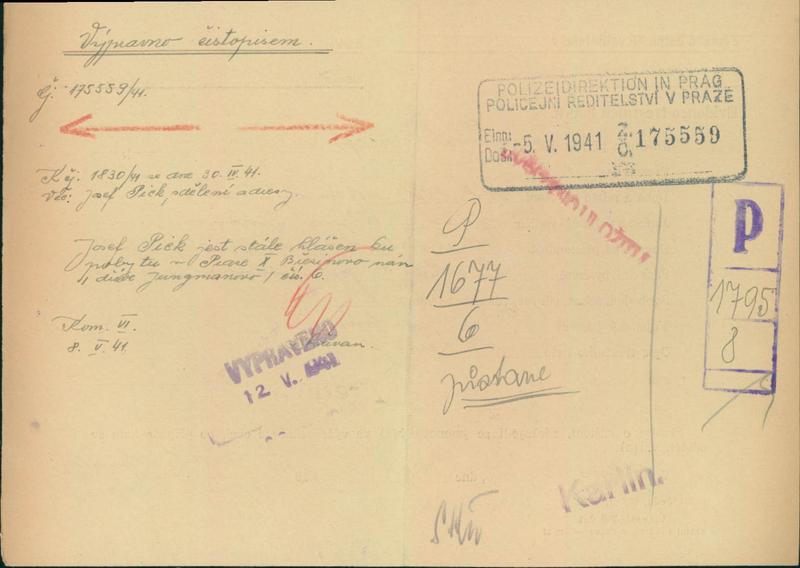 Výpravno čistopisem.
Čj. 175559/41.
K čj. 1830/41 ze dne 30. IV. 41.
Věc: Josef Pick, sdělení adresy.
Josef Pick jest stále hlášen ku
pobytu v Praze X nám
/ dříve Jungmanovo / čís. 6.
Kom. VI.
8. V. 41.
VYPRAVENO
12. V. 1941
POLIZEIDIREKTION IN PRAG
POLICEJNÍ ŘEDITELSTVÍ V PRAZE
Eing:
Došlo: -5. V. 1941 175559
P
1677
6
zůstane
P
1795
8
Karlín.